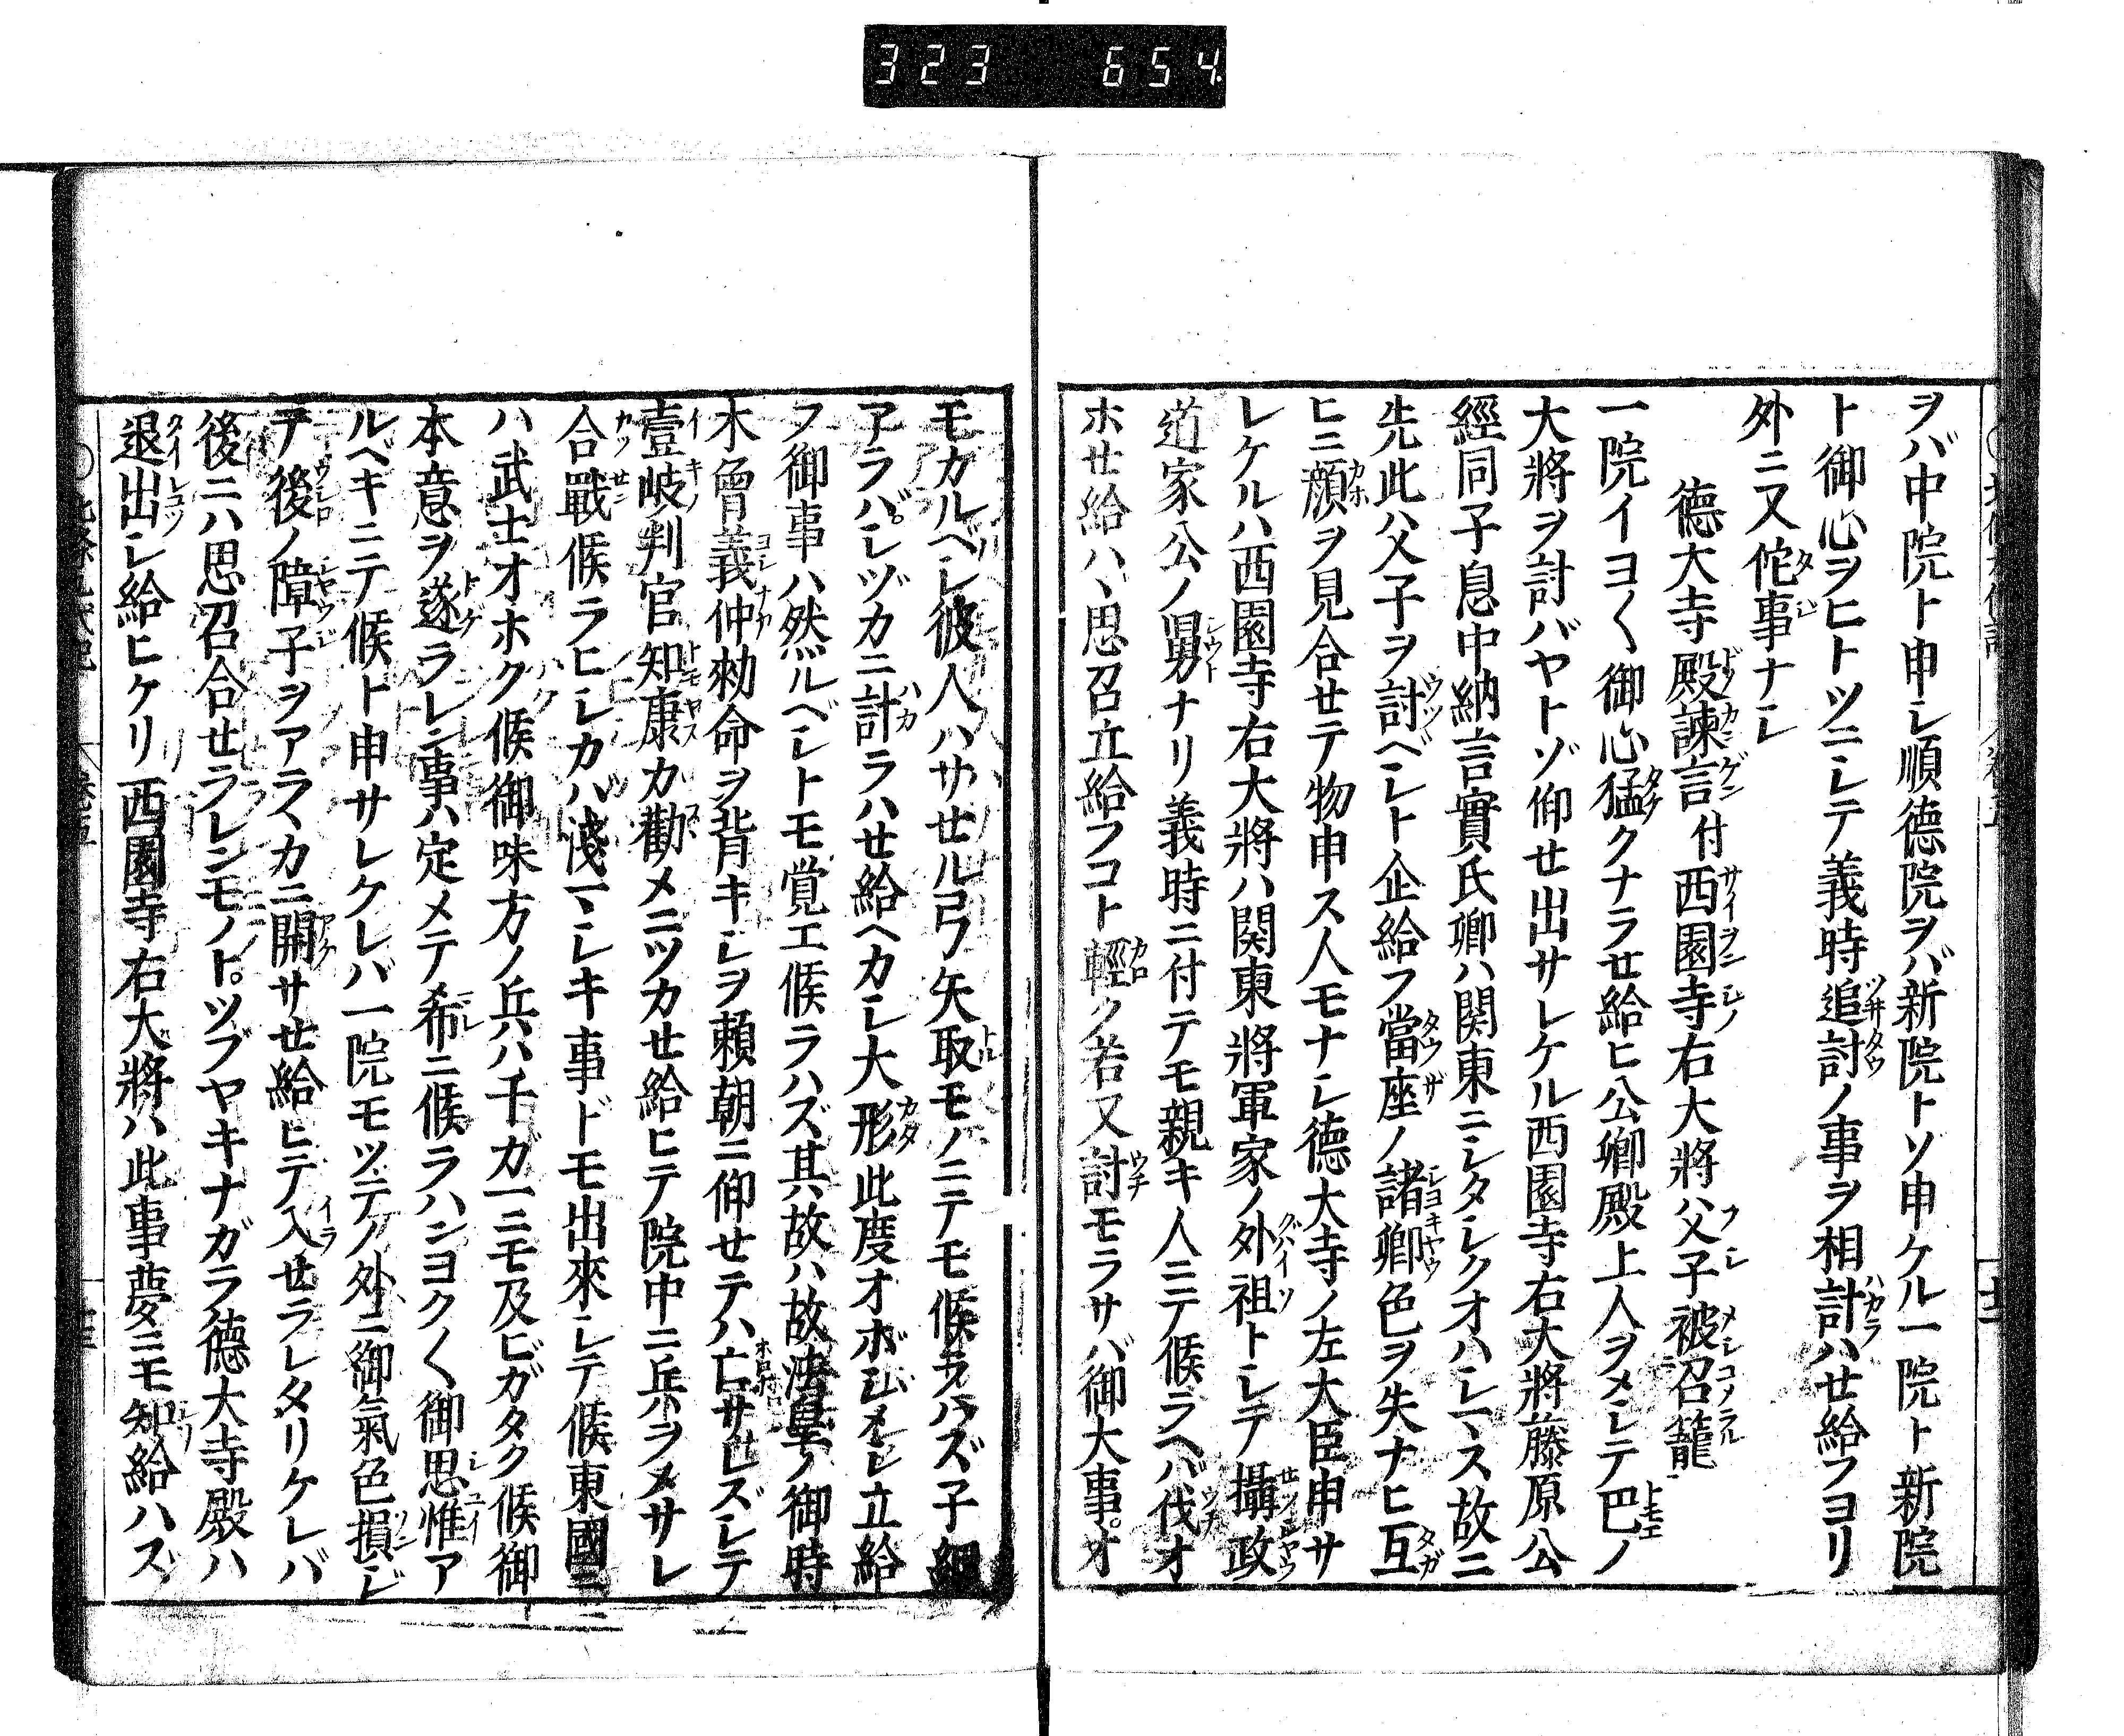 323 654
ヲバ中院ト申シ順德院ヲバ新院トソ申ケル一院ト新院
ト御心ヲヒトツニシテ義時追討ノ事ヲ相計ハせ給フヨリ
外ニ又佗事ナシ
德大寺殿諫言付西園寺右大將父子被召籠
一院イヨ〱御心猛クナラせ給ヒ公卿殿上人ヲメシテ巴ノ
大將ヲ討バヤトゾ仰せ出サレケル西園寺右大將藤原公
經同子息中納言實氏卿ハ関東ニシタシクオハシマス故ニ
先此父子ヲ討ベシト企給フ當座ノ諸卿色ヲ失ナヒ互
ヒニ顔ヲ見合せテ物申ス人モナシ德大寺ノ左大臣申サ
レケルハ西園寺右大將ハ関東將軍家ノ外祖トシテ攝政
道家公ノ舅ナリ義時ニ付テモ親キ人ニテ候ラヘバ伐オ
ホせ給ハヽ思召立給フコト輕ク若又討モラサバ御大事オ
モカルベシ彼人ハサせル弓矢取モノニテモ候ラハズ子細
アラバシヅカニ計ラハせ給ヘカシ大形此度オボシメシ立給
フ御事ハ然ルベシトモ覚エ候ラハズ其故ハ故法皇ノ御時
木曾義仲勅命ヲ背キシヲ賴朝ニ仰せテハ亡サレズシテ
壹岐判官知康カ勸メニツカせ給ヒテ院中ニ兵ヲメサレ
合戰候ラヒシカハ淺マシキ事ドモ出來シテ候東國ニ
ハ武士オホク候御味方ノ兵ハ千ガ一ニモ及ビガタク候御
本意ヲ遂ラレン事ハ定メテ希ニ候ラハンヨク〱御思惟ア
ルベキニテ候ト申サレケレバ一院モツテノ外ニ御氣色損ジ
テ後ノ障子ヲアラヽカニ開サせ給ヒテ入せラレタリケレバ
後ニハ思召合せラレンモノトツブヤキナガラ德大寺殿ハ
退出シ給ヒケリ西園寺右大將ハ此事夢ニモ知給ハス